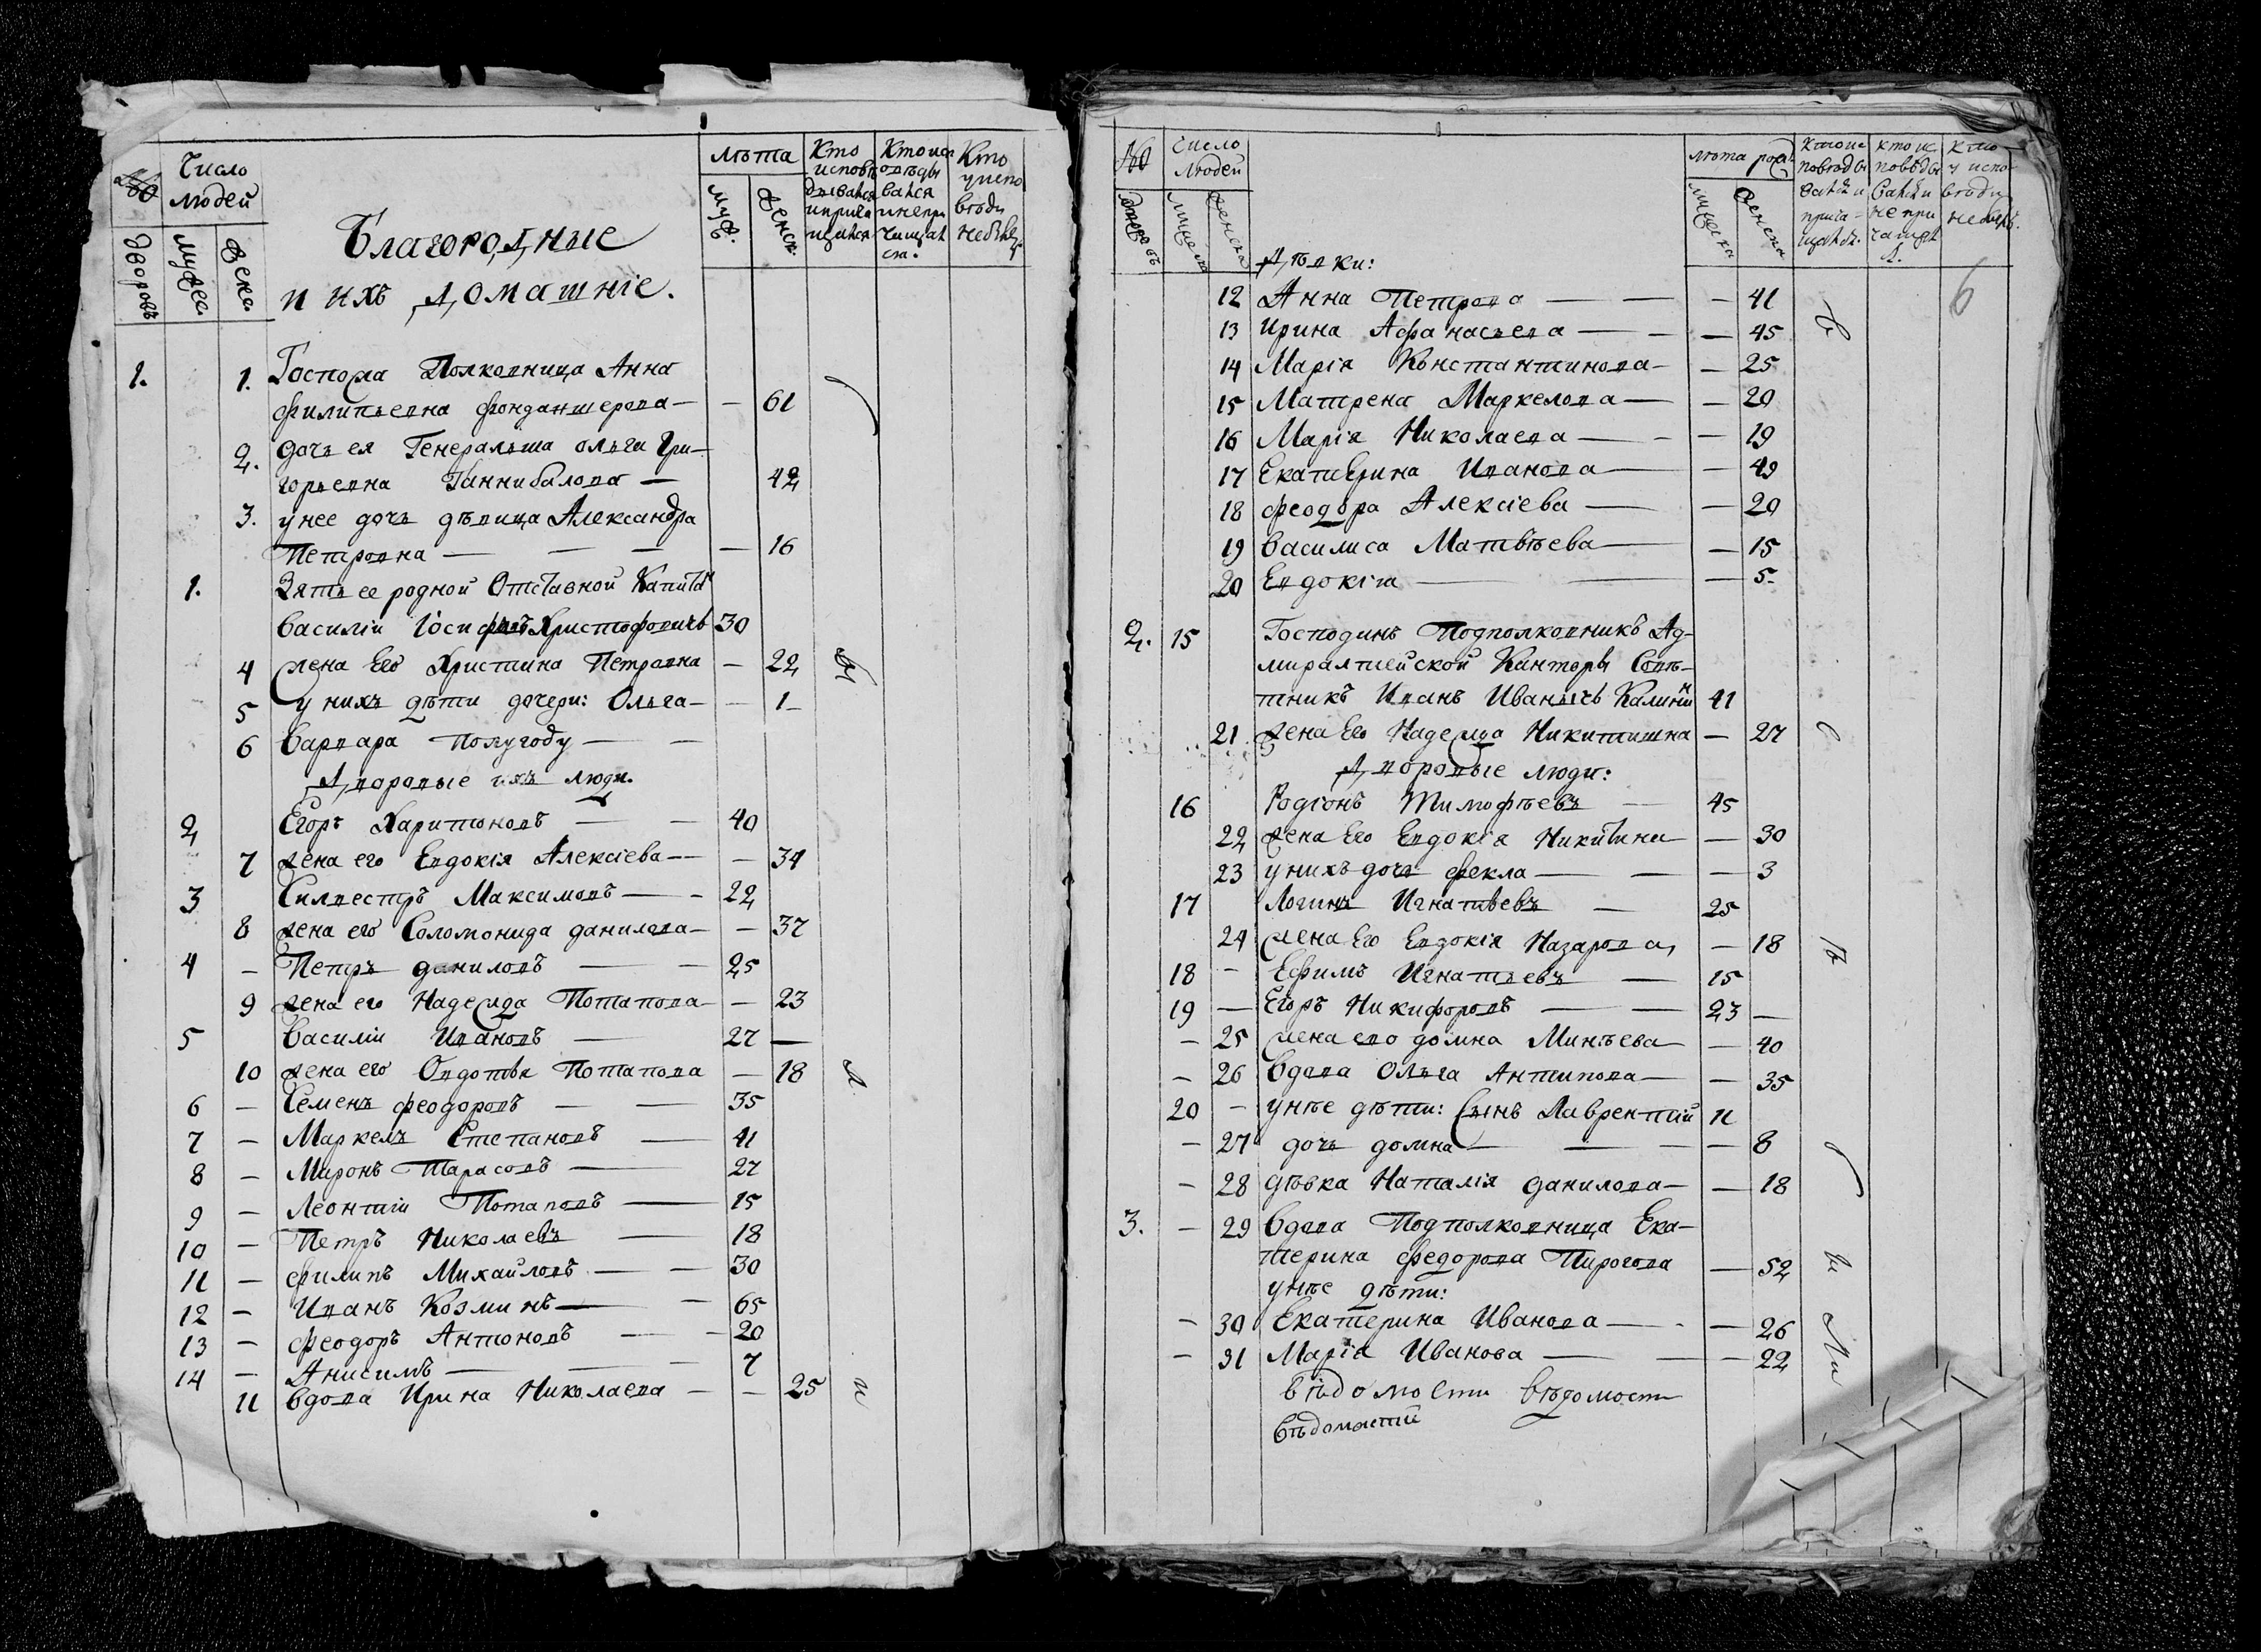 № Число людей
дворовъ муже. жене.
Благородные
и ихъ домашніе.
лѣта
муж. женск.
Кто исповѣдывался и причащался
Кто исповѣдывался и не причищался.
Кто у исповѣди не былъ
1. 1. Госпожа Полковница Анна
Филипьевна Фонданшерова — — 61
2. дочь ея Генеральша Ольга Гри-
горьевна Ганнибалова — 42
3. у нее дочь дѣвица Александра
Петровна — — — — 16
1. Зять ее родной Отставной Капитан
Василіи Іосифовъ Христофовичъ 30
4 жена Его Христина Петровна — 22
5 у нихъ дѣти дочери: Ольга — — 1
6 Варвара Полугоду — —
Дворовые ихъ люди.
2 Егоръ Харитоновъ — — 40
7 жена его Евдокія Алексіева — — 34
3 Силвестръ Максимовъ — - 22
8 жена его Соломонида Данилова — — 37
4 — Петръ Даниловъ — — 25
9 жена его Надежда Потапова — — 23
5 Василіи Ивановъ — 27 —
10 жена его Овдотья Потапова — 18
6 — Семенъ Феодоровъ — — 35
7 — Маркелъ Степановъ — 41
8 — Миронъ Тарасовъ — 27
9 — Леонтіи Потаповъ — 15
10 — Петръ Николаевъ — 18
11 — Филипъ Михайловъ — — 30
12 — Иванъ Козминъ — — 65
13 — Феодоръ Антоновъ — — 20
14 — Анисимъ — — — 7
11 вдова Ирина Николаева — — 25
№ Число Людей
дворовъ мужеска женска
лѣта рож:
мужеска женска
Кто исповѣдывался и причащался.
кто исповѣдывался и не причащался.
кто у исповѣди не былъ.
6
Дѣвки:
12 Анна Петрова — — — 41
13 Ирина Афанасьева — — — 45
14 Марія Константинова — — 25
15 Матрена Маркелова — — 20
16 Марія Николаева — - — 19
17 Екатерина Иванова — — 49
18 Феодора Алексіева — — 20
19 Василиса Матвѣева — — 15
20 Евдокіа — — — 5
2. 15 Господинъ Подполковникъ Ад-
миралтейской Канторы Совѣ-
тникъ Иванъ Иванычъ Калинин 41
21 жена Его Надежда Никитишна — 27
Дворовые люди:
16 Родіонъ Тимофѣевъ — 45
22 жена Его Евдокія Никитина — 30
23 у нихъ дочь Фекла — — — 3
17 Логинъ Игнатьевъ — 25
24 жена Его Евдокія Назарова, — 18
18 — Ефимъ Игнатьевъ — 15
19 — Егоръ Никифоровъ — — 23 —
— 25 жена ево Домна Минѣева — — 40
— 26 Вдова Ольга Антипова — — 35
20 — у нѣе дѣти: Сынъ Лаврентій 11
— 27 дочь Домна — — — — 8
— 28 дѣвка Наталія Данилова — — 18
3. — 29 Вдова Подполковница Ека-
терина Федорова Пирогова — 52
у нѣе дѣти:
— 30 Екатерина Иванова — - — 26
— 31 Маріа Иванова — — — 22
вѣдомости вѣдомости
вѣдомости